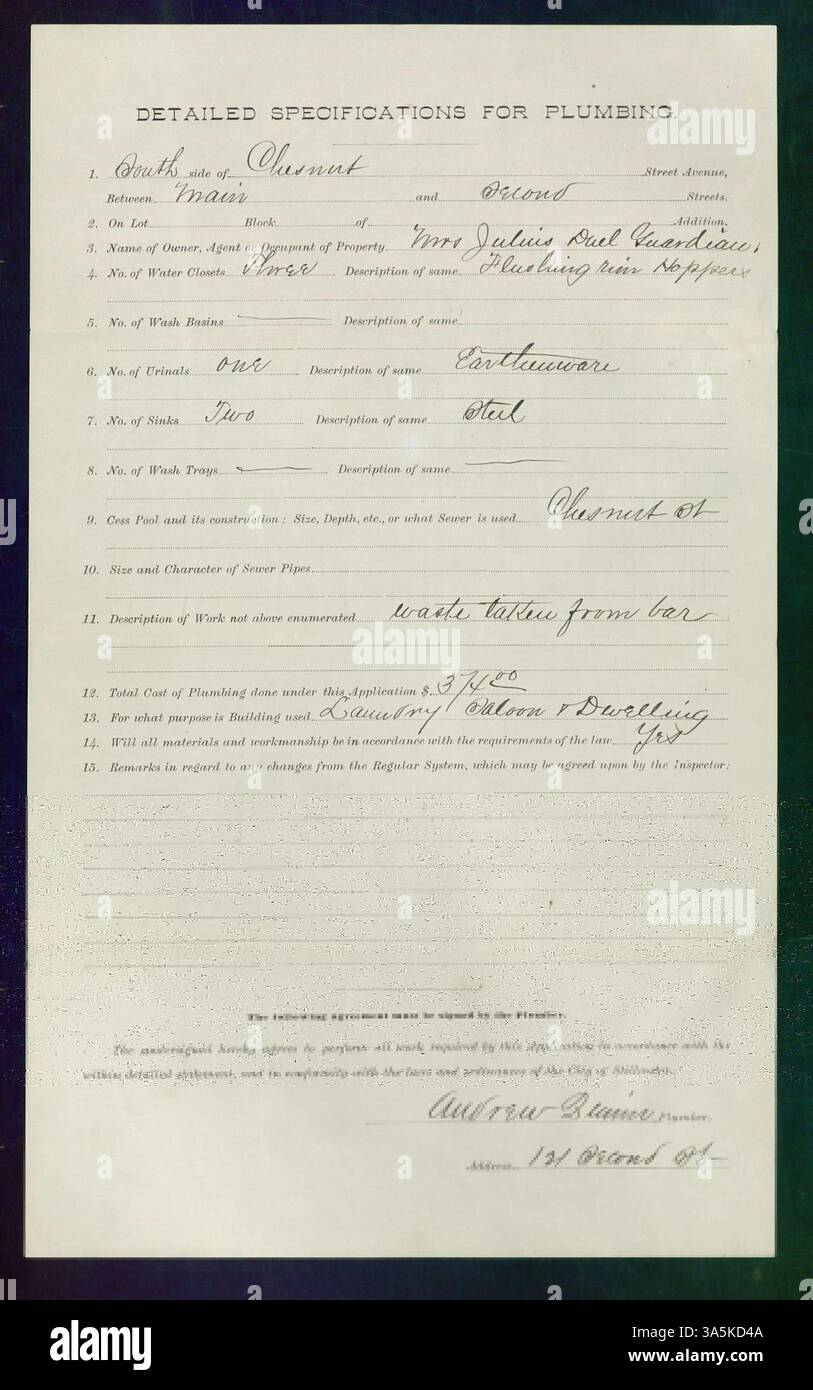 DETAILED SPECIFICATIONS FOR PLUMBING.
1. South side of Chesnut Street Avenue,
Between Main and Second Streets.
2. On Lot Block of Addition.
3. Name of Owner, Agent or Occupant of Property Mrs Julius Duel Guardian.
4. No. of Water Closets Three Description of same Flushing rim Hoppers
5. No. of Wash Basins Description of same
6. No. of Urinals one Description of same Earthenware
7. No. of Sinks Two Description of same Steel
8. No. of Wash Trays Description of same
9. Cess Pool and its construction: Size, Depth, etc., or what Sewer is used Chesnut St
10. Size and Character of Sewer Pipes
11. Description of Work not above enumerated waste taken from bar
12. Total Cost of Plumbing done under this Application $ 374 00
13. For what purpose is Building used Laundry Saloon & Dwelling
14. Will all materials and workmanship be in accordance with the requirements of the law Yes
15. Remarks in regard to any changes from the Regular System, which may be agreed upon by the Inspector:
The following agreement must be signed by the Plumber.
The undersigned hereby agrees to perform all work required by this Application in accordance with the
within detailed statement, and in conformity with the laws and ordinances of the City of Stillwater.
Andrew Plumber.
Address 121 Second St
alamy
alamy
alamy
alamy
Image ID: 3A5KD4A
www.alamy.com